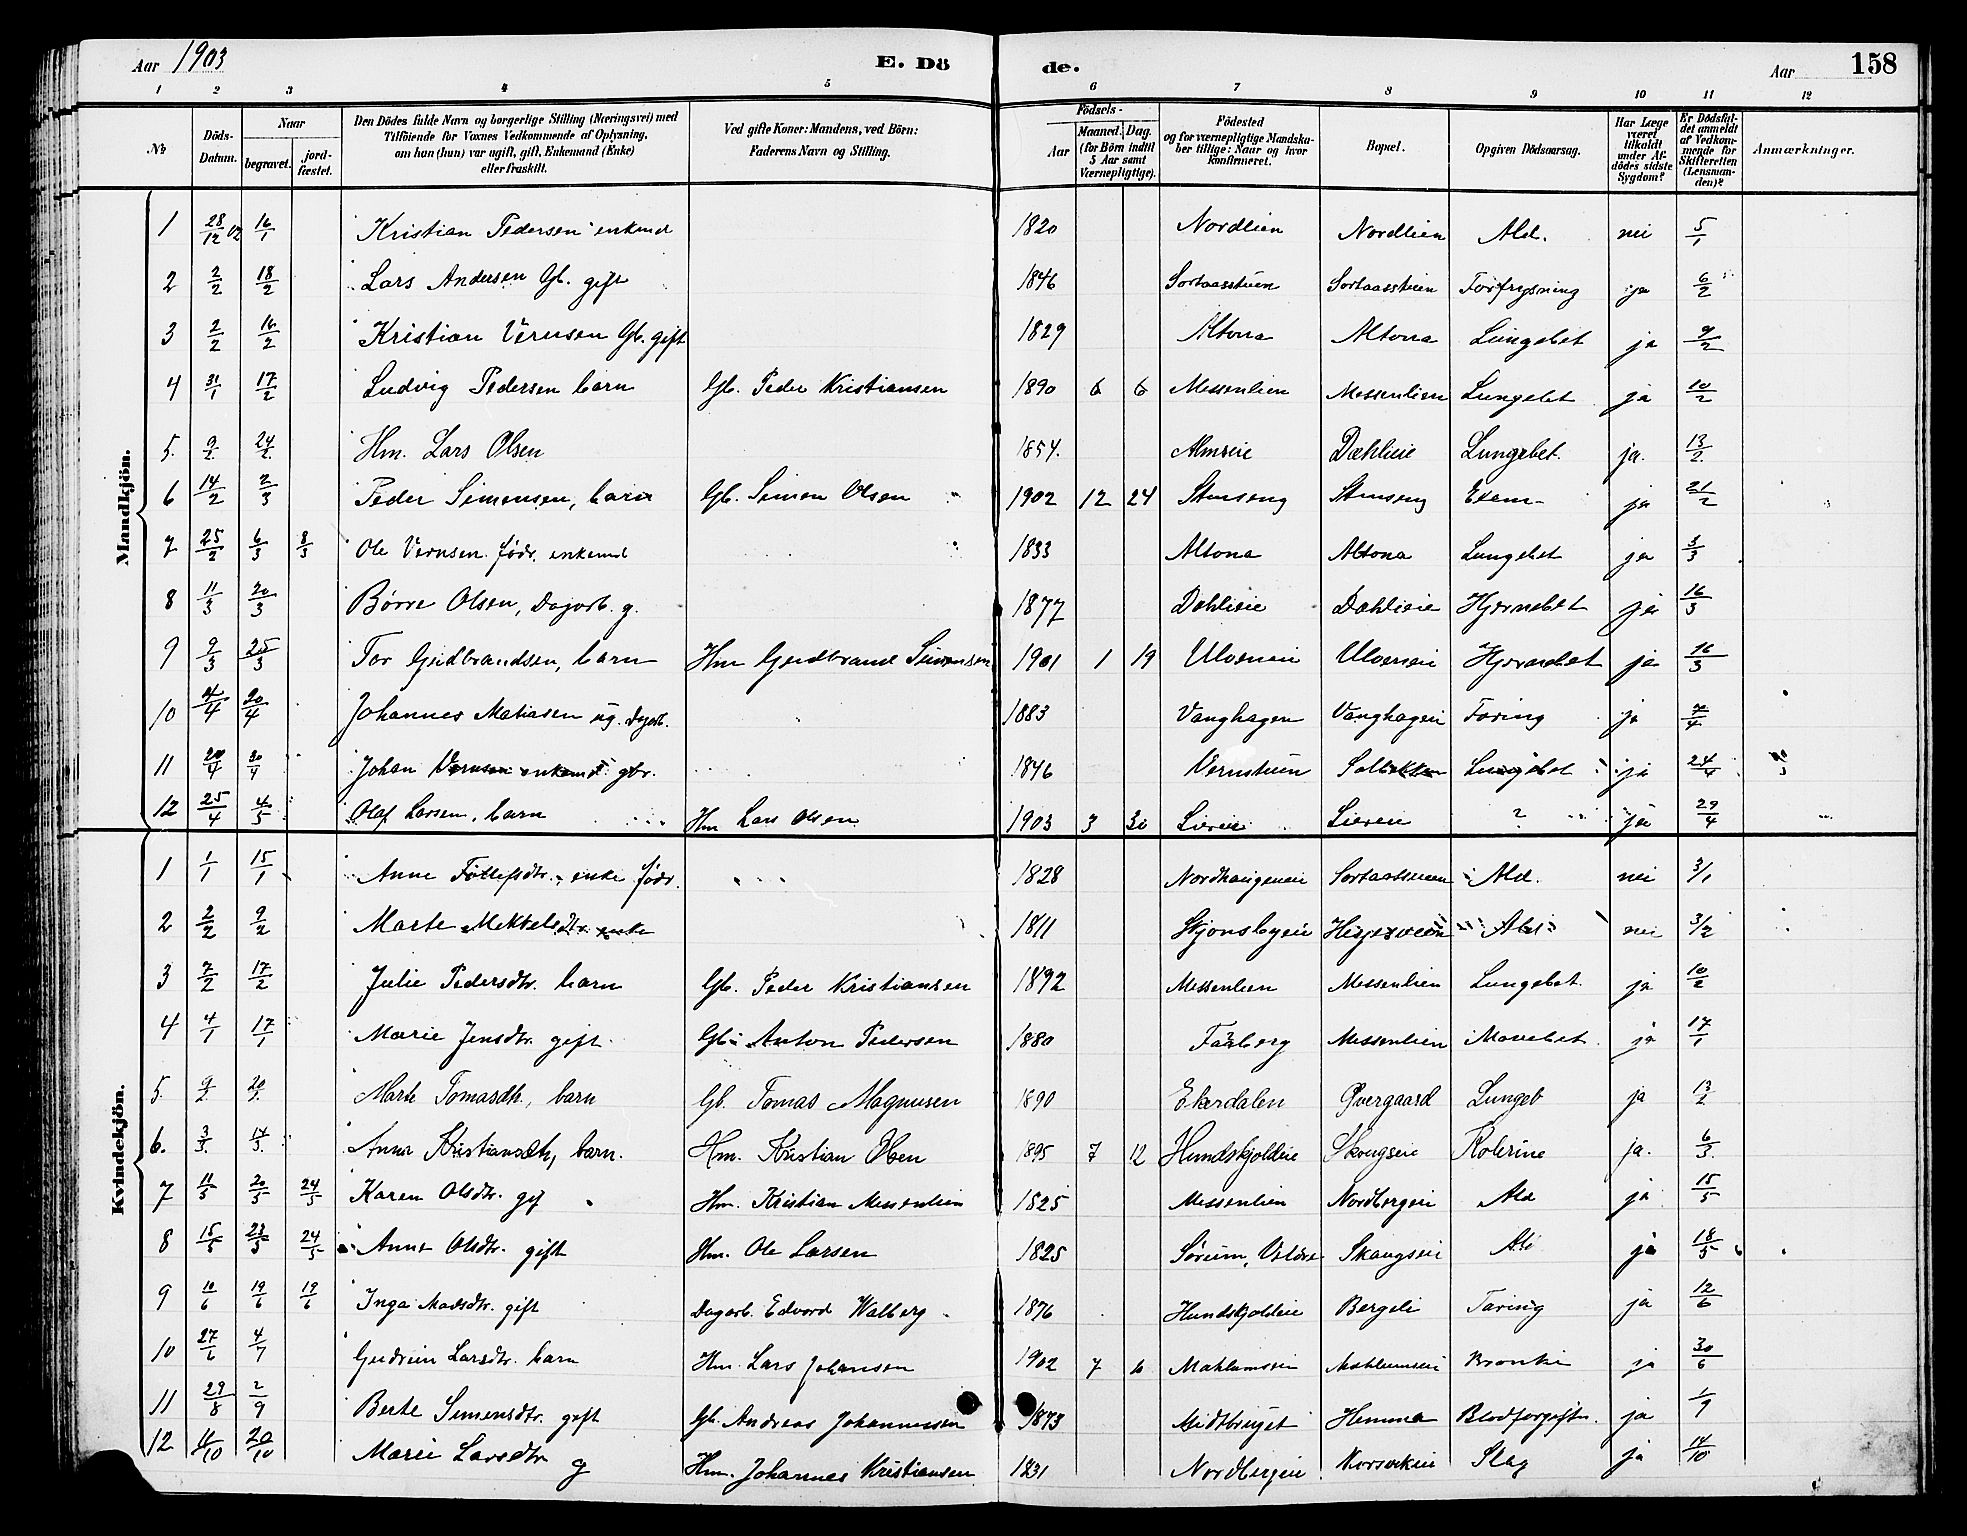 Aar 1903 E. Dö de. Aar 158
1 2 3 4 5 6 7 8 9 10 11 12
No
Döds-Datum.
Naar
begravet.
jord-fæstet.
Den Dödes fulde Navn og borgerlige Stilling (Næringsvei) med
Tilföiende for Voxnes Vedkommende af Oplysning,
om han (hun) var ugift, gift, Enkemand (Enke)
eller fraskilt.
Ved gifte Koner: Mandens, ved Börn:
Faderens Navn og Stilling.
Födsels-
Aar
Maaned. Dag.
(for Börn indtil
5 Aar samt
Værnepligtige).
Födested
og for værnepligtige Mandska-
ber tillige: Naar og hvor
konfirmeret.
Bopæl.
Opgiven Dödsaarsag.
Har Læge
været
tilkaldt
under Af-
dödes sidste
Sygdom?
Er Dödsfal-
det anmeldt
af Vedkom-
mende for
Skifteretten
(Lensman-
den)?
Anmærkninger.
Mandkjön.
1 28/12 02 16/1 Kristian Pedersen enkemd 1820 Nordlien Nordlien Ald. nei 5/1
2 2/2 18/2 Lars Andersen Gb. gift 1846 Sortaasstuen Sortaasstuen Forfrysning ja 6/2
3 2/2 16/2 Kristian Vernsen Gb. gift 1829 Altona Altona Lungebet ja 9/2
4 31/1 17/2 Ludvig Pedersen barn Gb. Peder Kristiansen 1890 6 6 Messenlien Messenlien Lungebet ja 10/2
5. 9/2 24/2 Hm. Lars Olsen 1854. Almseie Dæhlieie Lungebet. ja. 13/2
6 14/2 2/3 Peder Simensen, barn Gb. Simen Olsen 1902 12 24 Stenseng Stenseng ja 21/2
7 25/2 6/3 8/3 Ole Vernsen födr. enkemd 1833 Altona Altona Lungebet ja 3/3
8 11/3 20/3 Börre Olsen, Dagarb. g. 1877 Dæhlieie Dæhlieie Hjernebet ja 16/3
9 9/3 25/3 Tor Gudbrandsen, barn Hm Gudbrand Simensen 1901 1 19 Ulveneie Ulveneie Hjernebet ja 16/3
10 4/4 20/4 Johannes Matiasen ug. Dagarb. 1883 Vanghagen Vanghagen Tæring ja 7/4
11 20/4 30/4 Johan Vernsen enkemd gbr. 1846 Vernstuen Solbakken Lungebet ja 24/4
12 25/4 4/5 Olaf Larsen, barn Hm Lars Olsen 1903 3 30 Lieeie Lieeie ? ja 29/4
Kvindekjön.
1 1/1 15/1 Anne Tollefsdtr., enke födr. 1828 Nordhaugeneie Sortaasstuen Ald. nei 3/1
2 2/2 9/2 Marte Mekkelsdtr. enke 1811 Skjönsbyeie Ald nei 3/2
3 7/2 17/2 Julie Pedersdtr. barn Gb. Peder Kristiansen 1892 Messenlien Messenlien Lungebet. ja 10/2
4 4/1 17/1 Marie Jensdtr. gift Gb. Anton Pedersen 1880 Faaberg Messenlien Mavebet. ja 17/1
5. 9/2 20/2 Marte Tomasdtr., barn Gb. Tomas Magnusen 1890 Ekerdalen Övergaard Lungeb ja 13/2
6. 3/3. 14/3. Anna Kristiansdtr, barn. Hm. Kristian Olsen 1895 7 12 Hundskjoldeie Skougseie Kolerine ja. 6/3.
7 11/5 20/5 24/5 Karen Olsdtr. gif Hm. Kristian Messenlien 1825 Messenlien Nordbergeie Ald ja 15/5
8 15/5 23/5 24/5 Anne Olsdtr. gift Hm. Ole Larsen 1825 Sörum, Valdres Skaugseie Ald ja 18/5
9 10/6 19/6 19/6 Inga Madsdtr. gift Dagarb. Edvard Walberg 1876 Hundskjoldeie Bergeli Tæring ja 12/6
10 27/6 4/7 Gudrun Larsdtr. barn Hm. Lars Johansen 1902 7 6 Mæhlumseie Mæhlumseie Bronki ja 30/6
11 29/8 2/9 Berte Simensdtr. gift Gb. Andreas Johannessen 1873 Midtbruget Hemma Blodforgiftn. ja 1/9
12 11/10 20/10 Marie Larsdtr g Hm. Johannes Kristiansen 1831 Nordbergeie Korsvekeie Slag ja 14/10